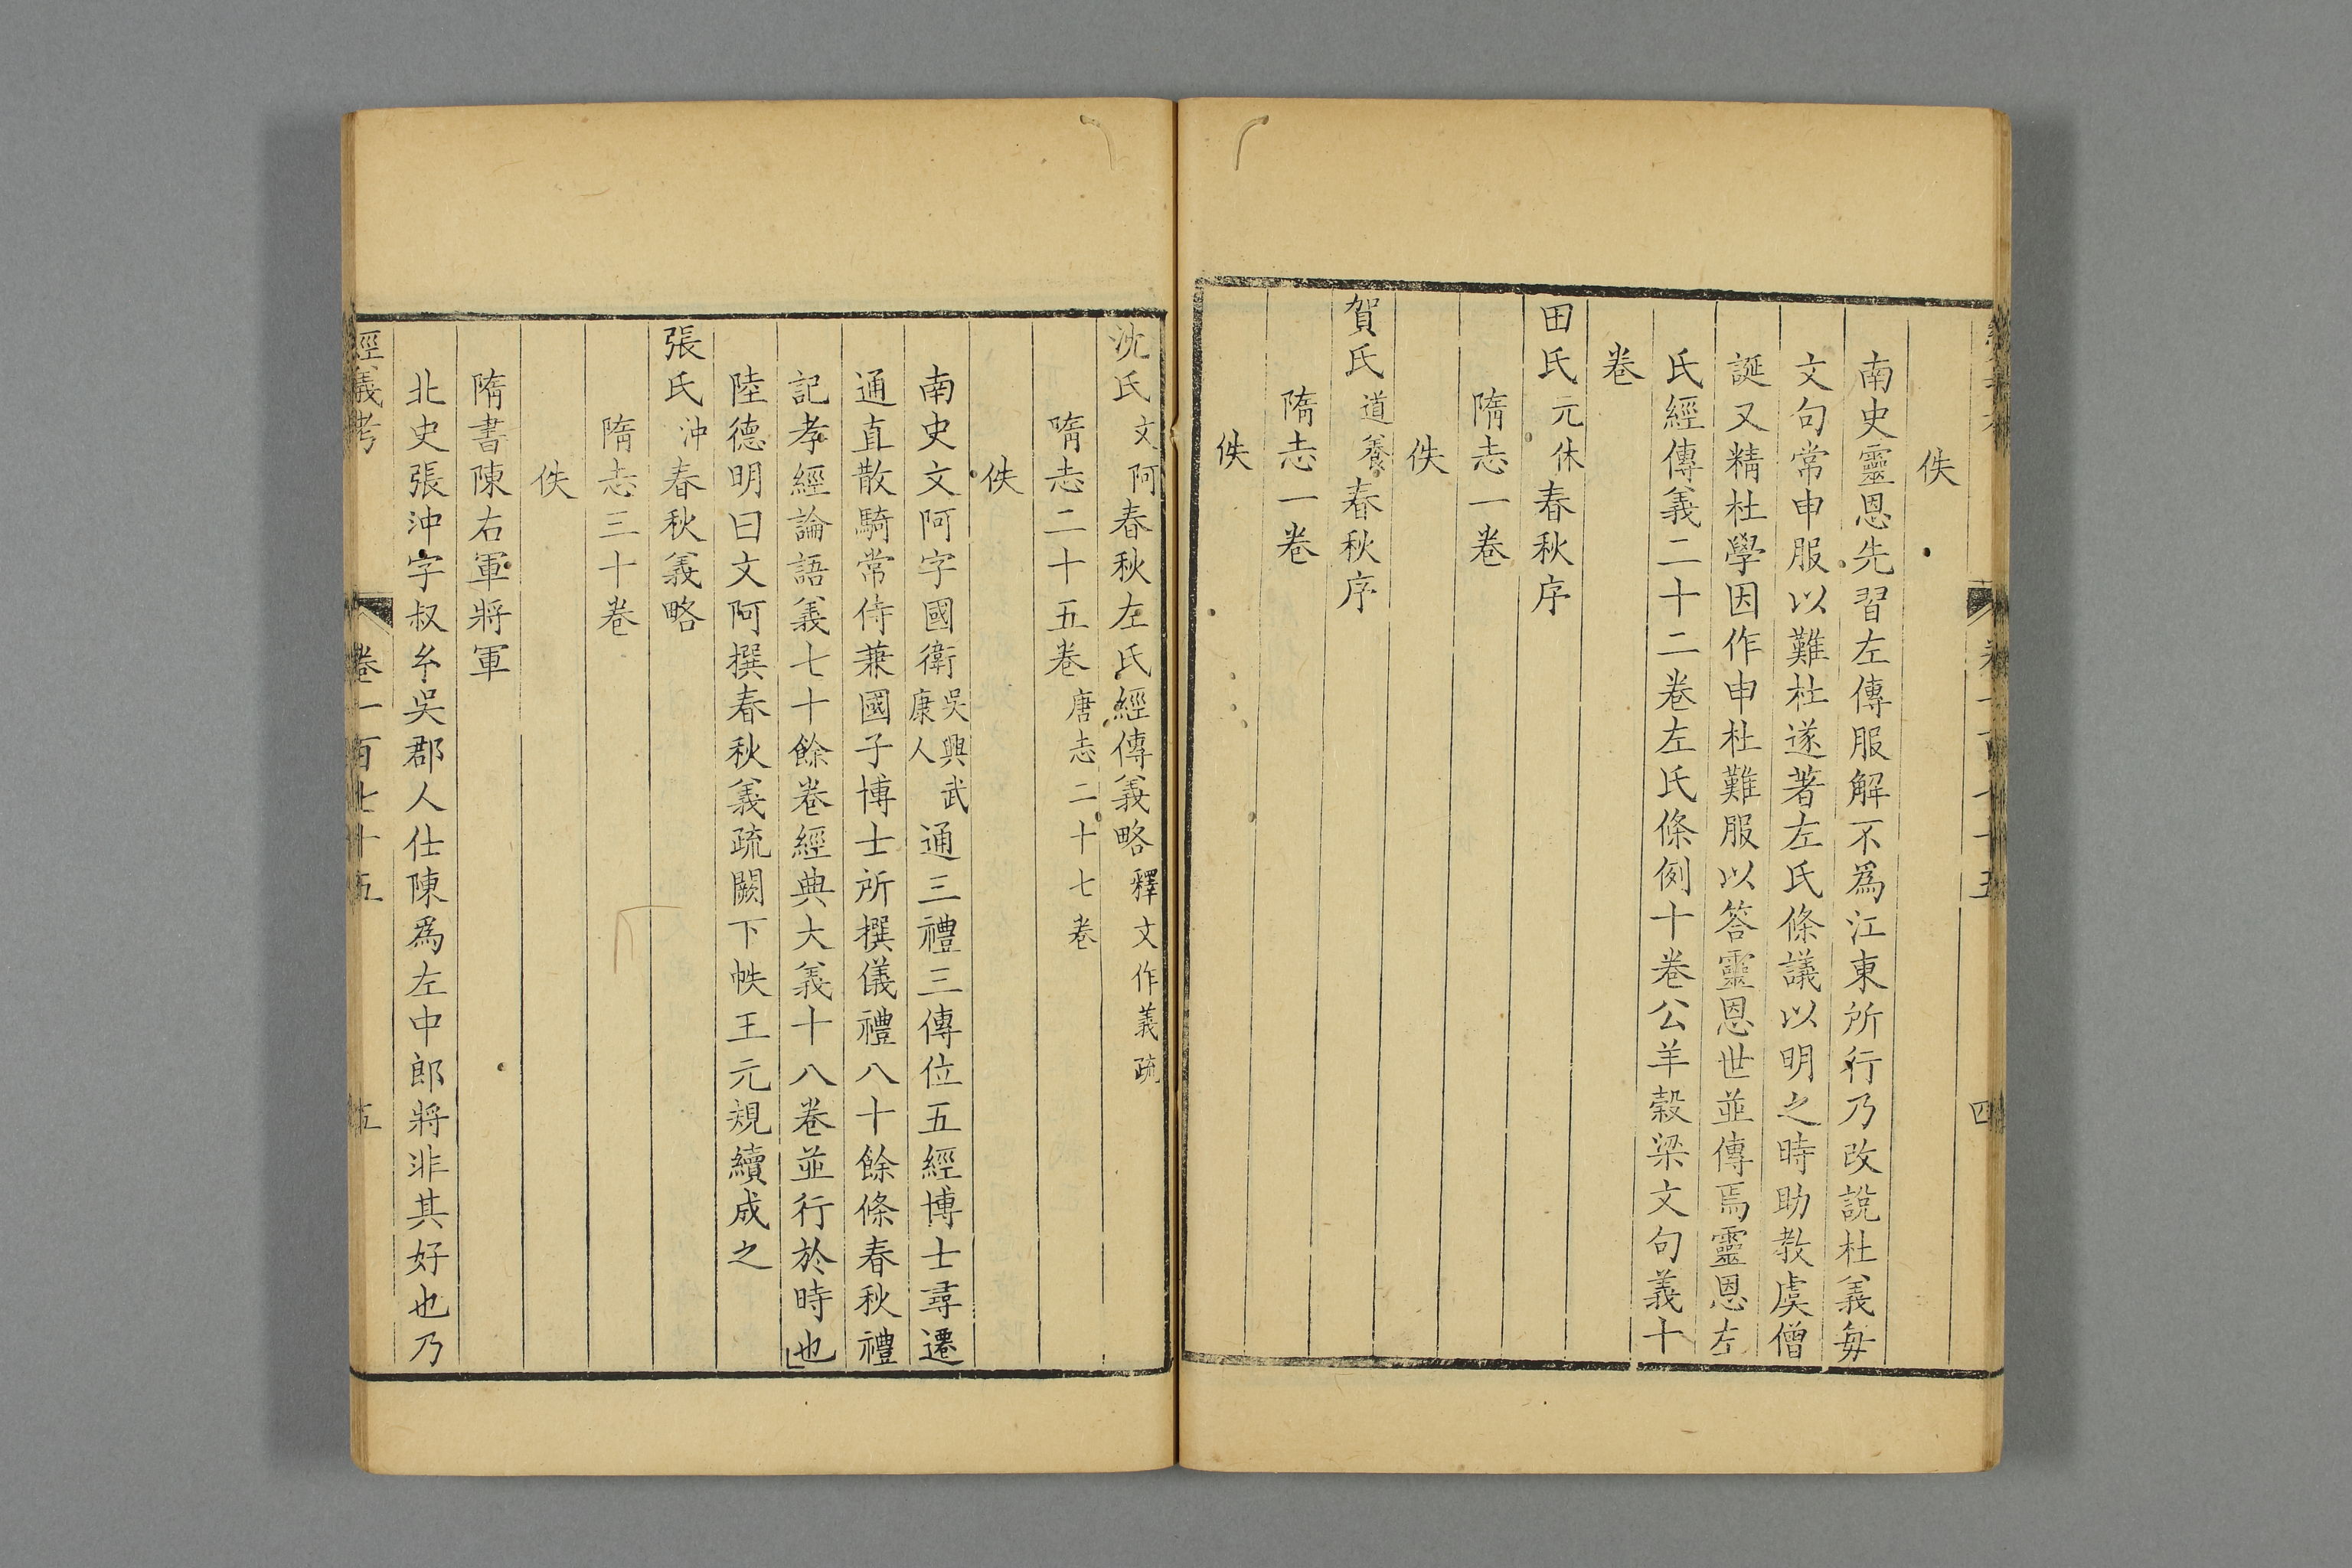 佚
南史靈恩先習左傳服解不爲江東所行乃改說杜義毎
文句常申服以難杜遂著左氏條議以明之時助敎虞僧
誕又精杜學因作申杜難服以答靈恩世並傳焉靈恩左
氏經傳義二十二卷左氏條例十卷公羊穀梁文句義十
卷
田氏元休春秋序
隋志一卷
佚
賀氏道養春秋序
隋志一卷
佚
沈氏文阿春秋左氏經傳義略釋文作義疏
隋志二十五卷唐志二十七卷
佚
南史文阿字國衛吳興武康人通三禮三傳位五經博士尋遷
通直散騎常侍兼國子博士所撰儀禮八十餘條春秋禮
記孝經論語義七十餘卷經典大義十八卷並行於時也
陸德明曰文阿撰春秋義疏闕下帙王元規續成之
張氏沖春秋義略
隋志三十卷
佚
隋書陳右軍將軍
北史張沖字叔㒷吳郡人仕陳爲左中郎將非其好也乃
經義考 卷一百七十五 五